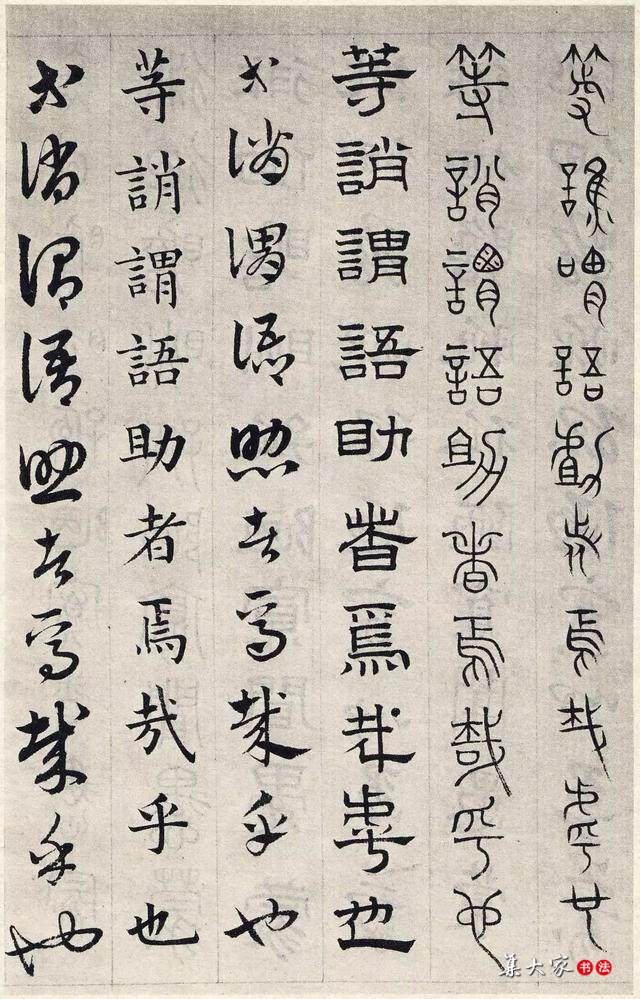 等誚謂語助者焉哉乎也
等誚謂語助者焉哉乎也
等誚謂語助者焉哉乎也
等誚謂語助者焉哉乎也
等誚謂語助者焉哉乎也
等誚謂語助者焉哉乎也
集大家 书法